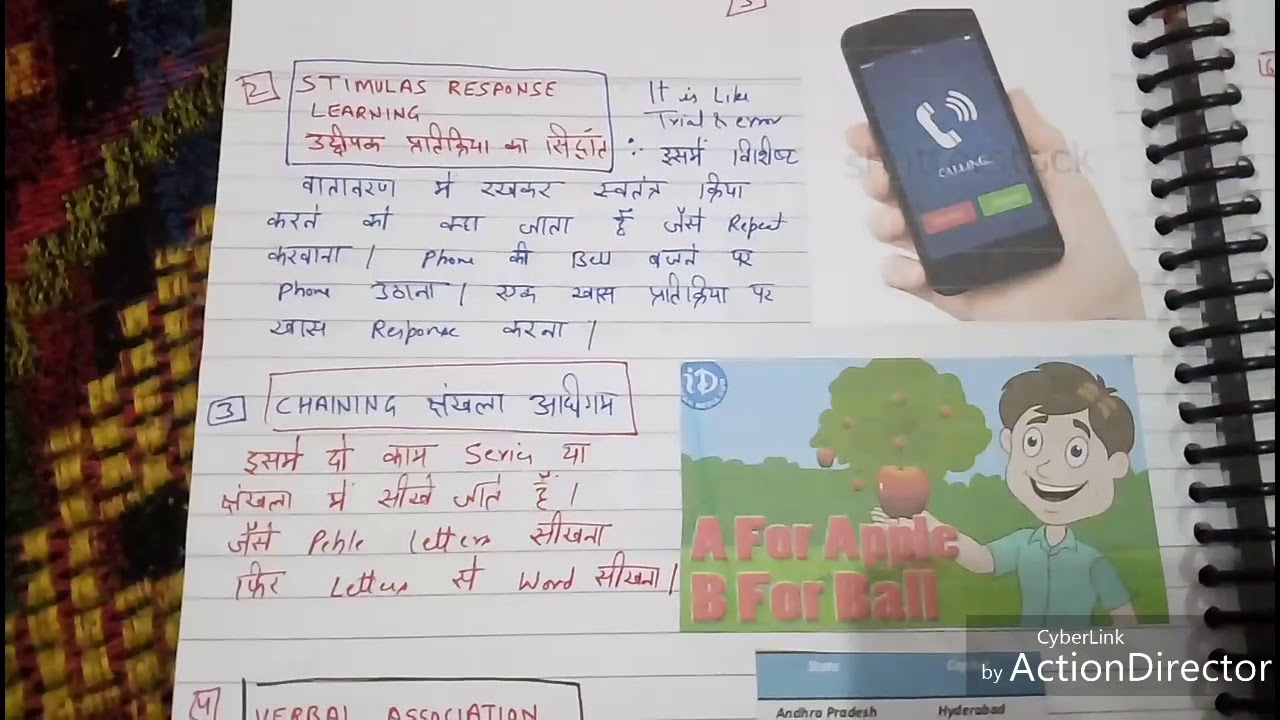 2
STIMULAS RESPONSE
LEARNING
उद्दीपक प्रतिक्रिया का सिद्धांत
It is Like
Trial & error
∵ इसमें विशिष्ट
वातावरण में रखकर स्वतंत्र क्रिया
करने को कहा जाता हैं जैसे Repeat
करवाना | Phone की Bell बजने पर
Phone उठाना | एक खास प्रतिक्रिया पर
खास Response करना |
CALLING
3
CHAINING श्रंखला अधिगम
इसमे दो काम Series या
श्रंखला में सीखे जाते हैं |
जैसे Pehle letters सीखना
फिर Letters से Word सीखना |
iD
A For Apple
B For Ball
4
VERBAL ASSOCIATION
State
Andhra Pradesh Hyderabad
CyberLink
by ActionDirector